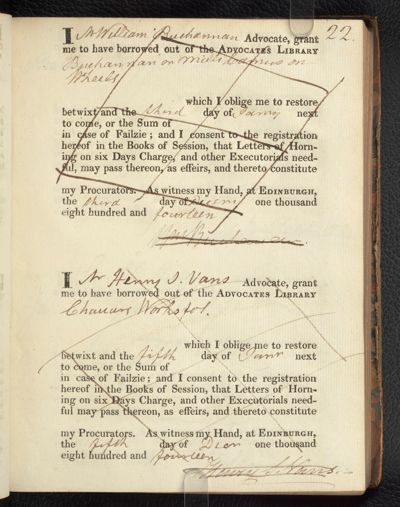 22.
I Mr William Buchannan Advocate, grant
me to have borrowed out of the ADVOCATES LIBRARY
Buchannan on Mills, on
Wheels
which I oblige me to restore
betwixt and the third day of Jany next
to come, or the Sum of
in case of Failzie; and I consent to the registration
hereof in the Books of Session, that Letters of Horn-
ing on six Days Charge, and other Executorials need-
ful, may pass thereon, as effeirs, and thereto constitute
my Procurators. As witness my Hand, at EDINBURGH,
the third day of one thousand
eight hundred and fourteen
I Mr Henry S. Vans Advocate, grant
me to have borrowed out of the ADVOCATES LIBRARY
which I oblige me to restore
betwixt and the fifth day of Janr next
to come, or the Sum of
in case of Failzie; and I consent to the registration
hereof in the Books of Session, that Letters of Horn-
ing on six Days Charge, and other Executorials need-
ful may pass thereon, as effeirs, and thereto constitute
my Procurators. As witness my Hand, at EDINBURGH,
the fifth day of one thousand
eight hundred and fourteen
Henry S. Vans.